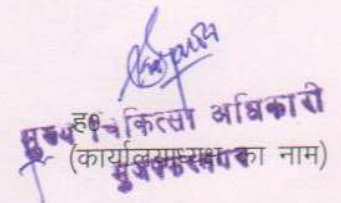 ह०
मुख्य चिकित्सा अधिकारी
(कार्यालयाध्यक्ष का नाम)
मुजफ्फरनगर